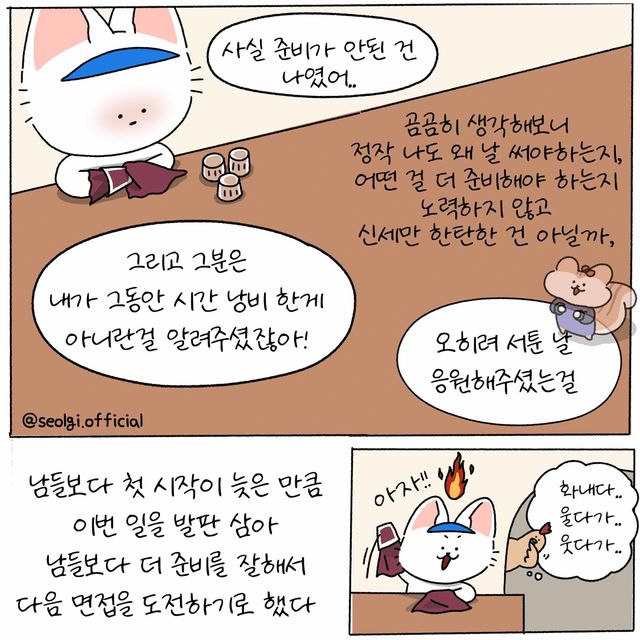 사실 준비가 안된 건
나였어..
곰곰히 생각해보니
정작 나도 왜 날 써야하는지,
어떤 걸 더 준비해야 하는지
노력하지 않고
신세만 한탄한 건 아닐까,
그리고 그분은
내가 그동안 시간 낭비 한게
아니란걸 알려주셨잖아!
오히려 서툰 날
응원해주셨는걸
@seolgi.official
남들보다 첫 시작이 늦은 만큼
이번 일을 발판 삼아
남들보다 더 준비를 잘해서
다음 면접을 도전하기로 했다
아자!!
화내다..
울다가..
웃다가..